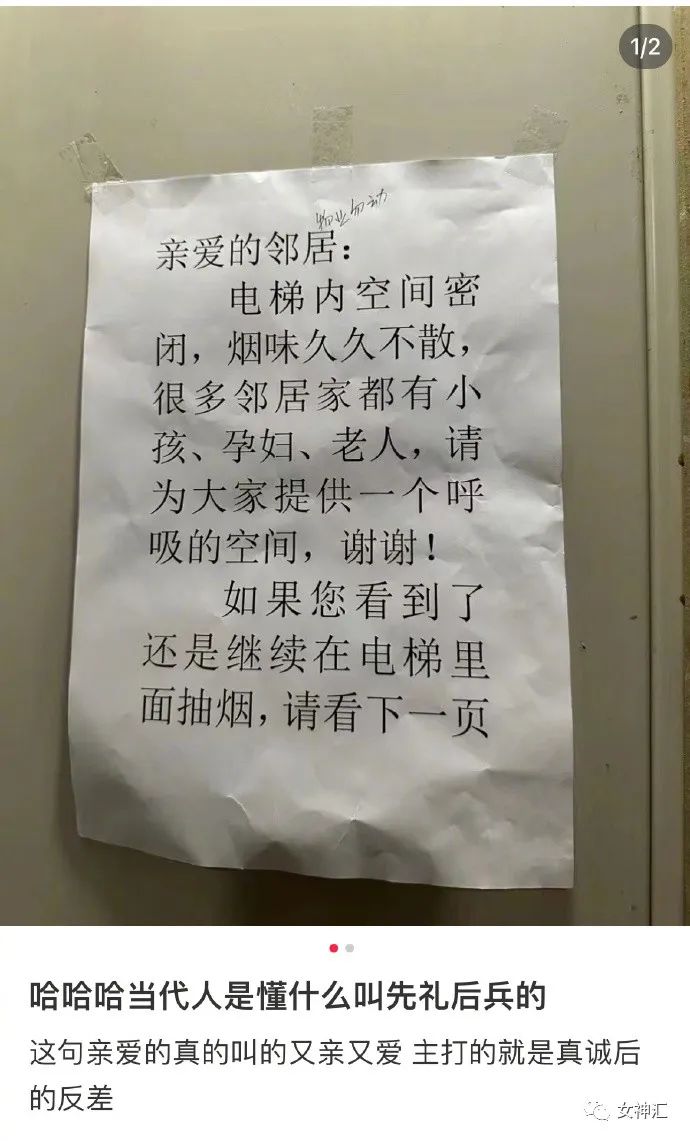 1/2
物业勿动
亲爱的邻居：
电梯内空间密
闭，烟味久久不散，
很多邻居家都有小
孩、孕妇、老人，请
为大家提供一个呼
吸的空间，谢谢！
如果您看到了
还是继续在电梯里
面抽烟，请看下一页
哈哈哈当代人是懂什么叫先礼后兵的
这句亲爱的真的叫的又亲又爱 主打的就是真诚后
的反差
女神汇